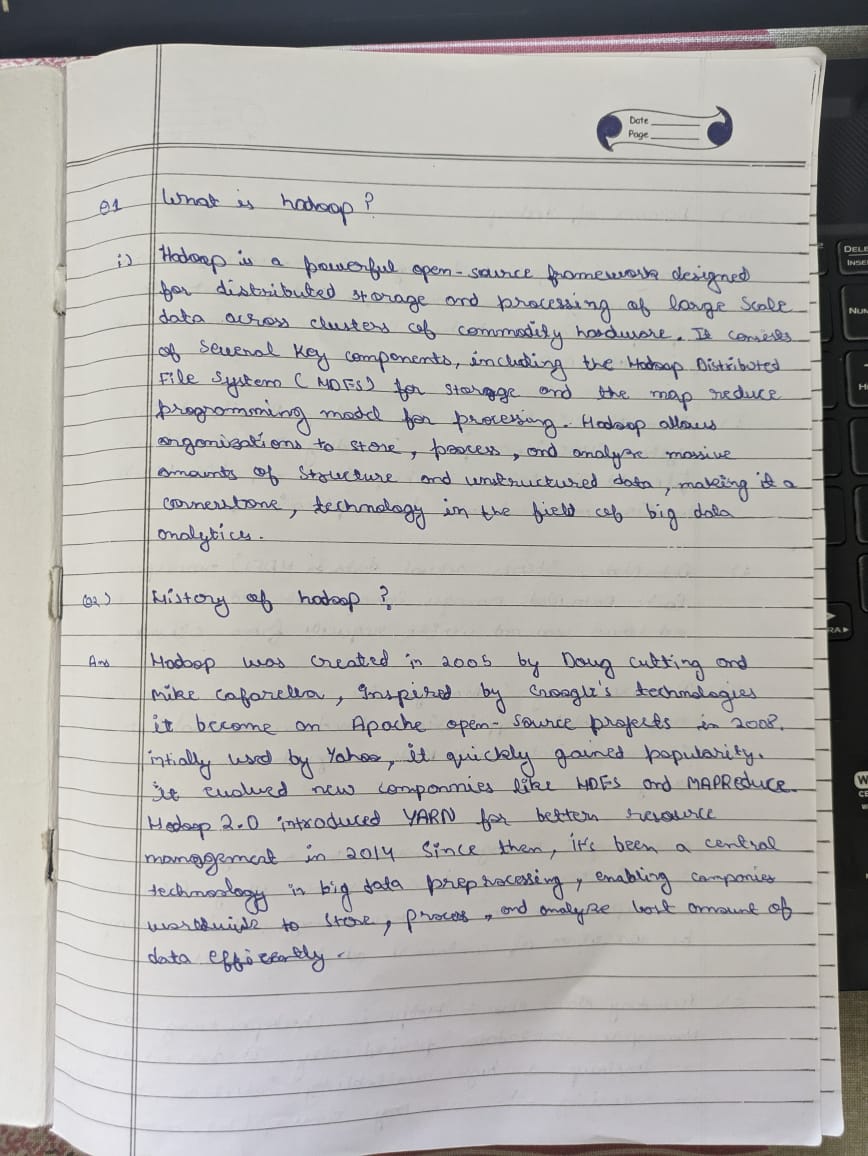 Date
Page
Q1 What is hadoop?
i) Hadoop is a powerful open-source framework designed
for distributed storage and processing of large scale
data across clusters of commodity hardware. It consists
of several key components, including the Hadoop Distributed
File System (HDFS) for storage and the map reduce
programming model for processing. Hadoop allows
organizations to store, process, and analyze massive
amounts of structure and unstructured data, making it a
cornerstone, technology in the field of big data
analytics.
Q2) History of hadoop?
Ans Hadoop was created in 2005 by Doug cutting and
Mike cafarella, Inspired by Google's technologies
it become an Apache open-source projects in 2008.
intially used by Yahoo, it quickly gained popularity.
it evolved new componnies like HDFS and MAPReduce.
Hadoop 2.0 introduced YARN for better resource
management in 2014 Since then, it's been a central
technology in big data preprocessing, enabling companies
worldwide to store, process, and analyze amount of
data efficiently.
DELE
INSE
NUM